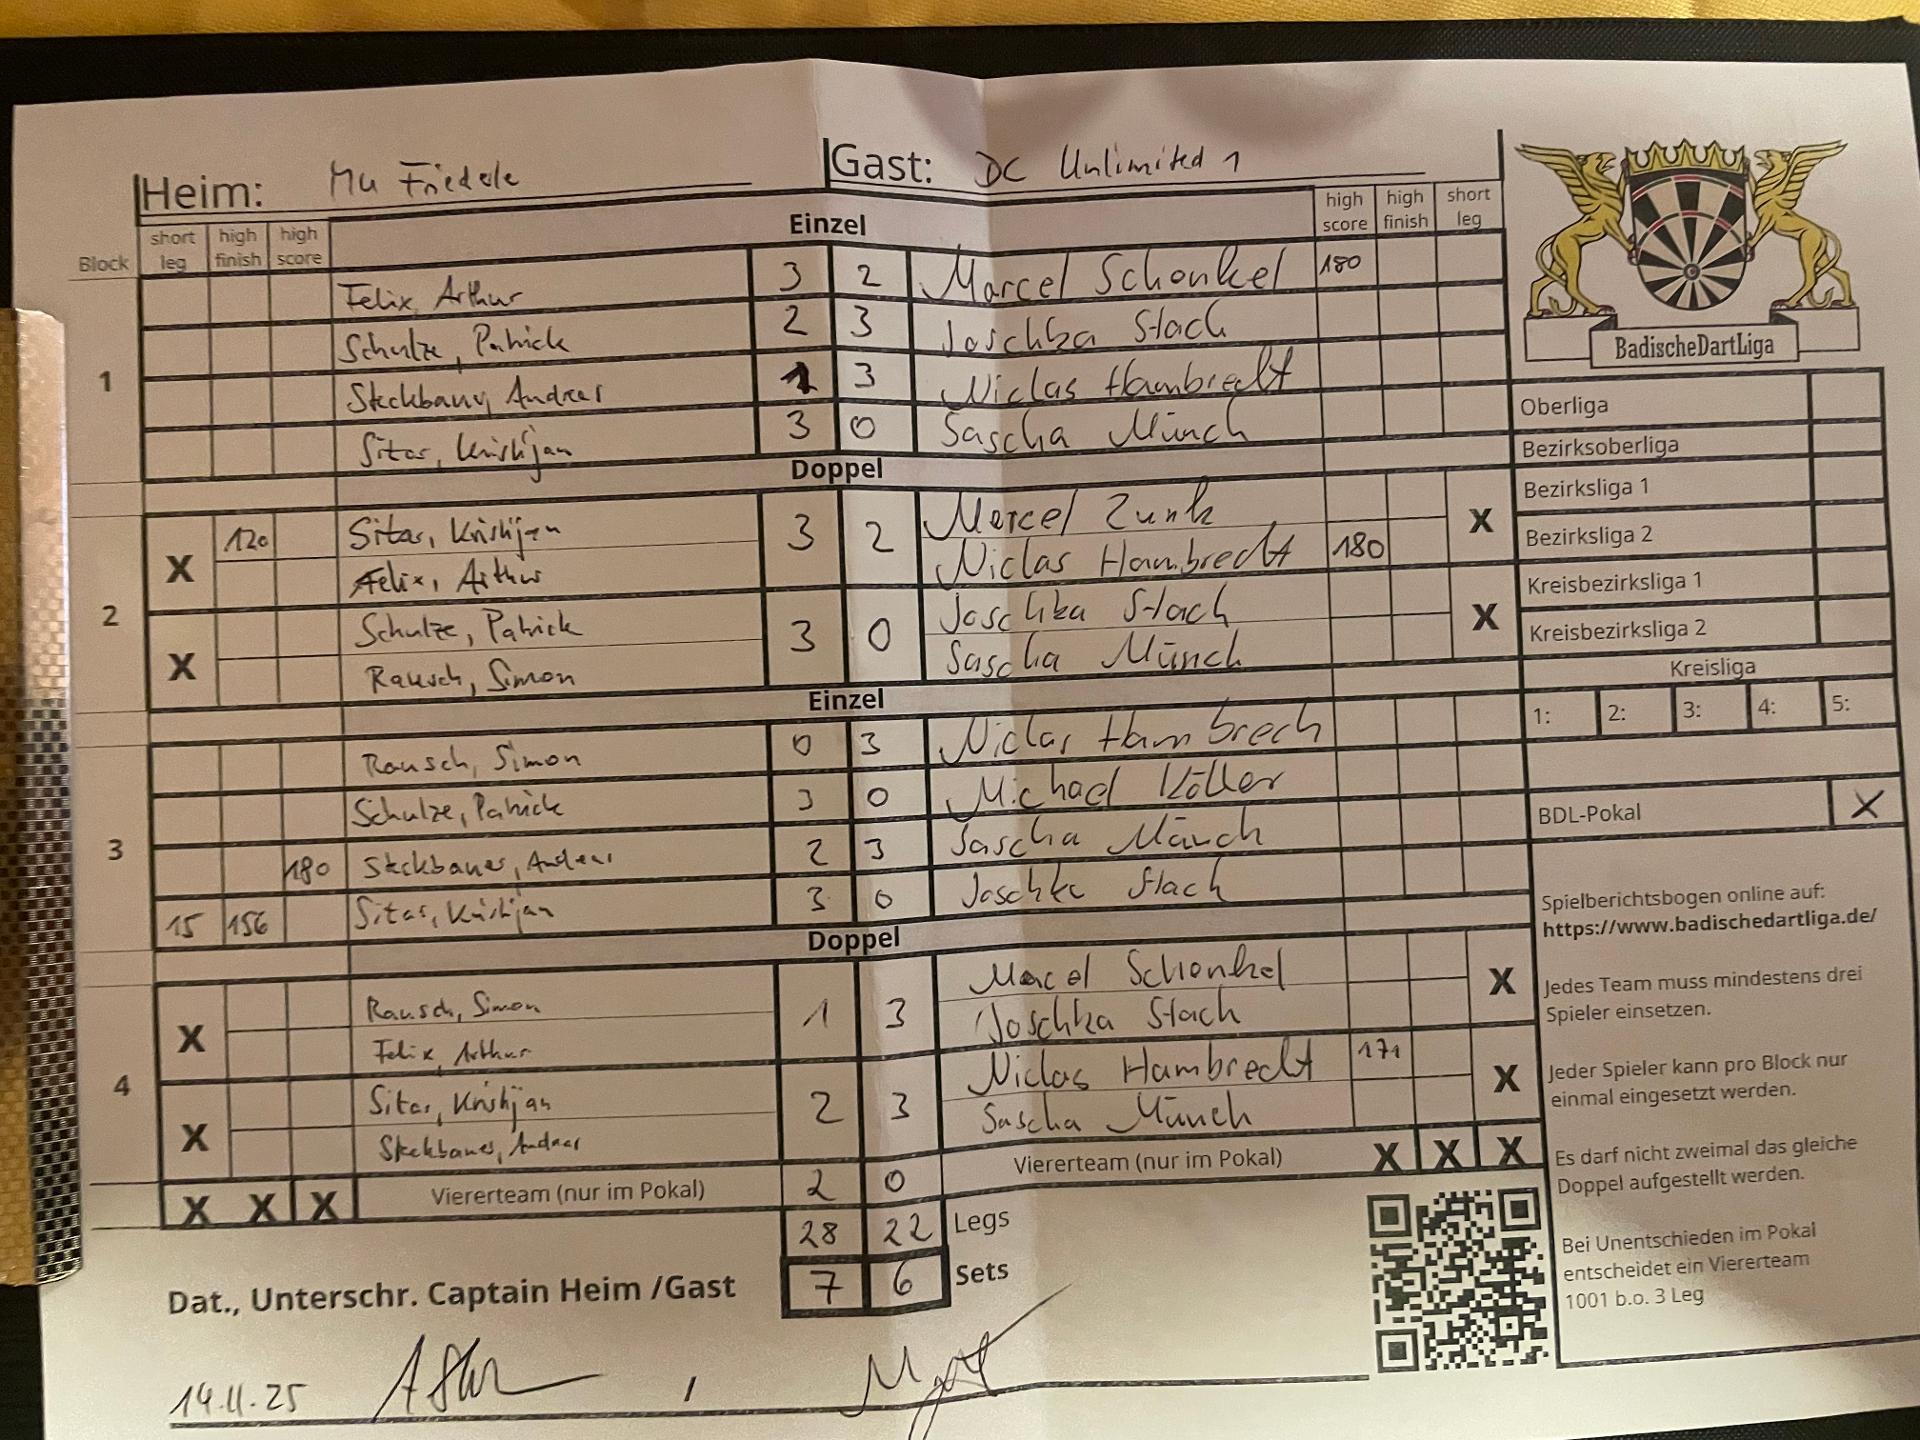 Heim: Mu Friedele Gast: DC Unlimited 1
Block short leg high finish high score Einzel high score high finish short leg
1
Felix, Arthur 3 2 Marcel Schenkel 180
Schulze, Patrick 2 3 Joschka Stach
Steckbauer, Andreas 1 3 Niclas Hambrecht
Sitar, Kristijan 3 0 Sascha Münch
Doppel
2
X 120 Sitar, Kristijan 3 2 Marcel Zunk X
Felix, Arthur Niclas Hambrecht 180
X Schulze, Patrick 3 0 Joschka Stach X
Rausch, Simon Sascha Münch
Einzel
3
Rausch, Simon 0 3 Niclas Hambrech
Schulze, Patrick 3 0 Michael Köller
180 Steckbauer, Andreas 2 3 Sascha Münch
15 156 Sitar, Kristijan 3 0 Joschka Stach
Doppel
4
X Rausch, Simon 1 3 Marcel Schenkel X
Felix, Arthur Joschka Stach
X Sitar, Kristijan 2 3 Niclas Hambrecht 171 X
Steckbauer, Andreas Sascha Münch
X X X Viererteam (nur im Pokal) 2 0 Viererteam (nur im Pokal) X X X
28 22 Legs
7 6 Sets
Dat., Unterschr. Captain Heim /Gast
14.11.25
BadischeDartLiga
Oberliga
Bezirksoberliga
Bezirksliga 1
Bezirksliga 2
Kreisbezirksliga 1
Kreisbezirksliga 2
Kreisliga
1: 2: 3: 4: 5:
BDL-Pokal X
Spielberichtsbogen online auf:
https://www.badischedartliga.de/
Jedes Team muss mindestens drei
Spieler einsetzen.
Jeder Spieler kann pro Block nur
einmal eingesetzt werden.
Es darf nicht zweimal das gleiche
Doppel aufgestellt werden.
Bei Unentschieden im Pokal
entscheidet ein Viererteam
1001 b.o. 3 Leg